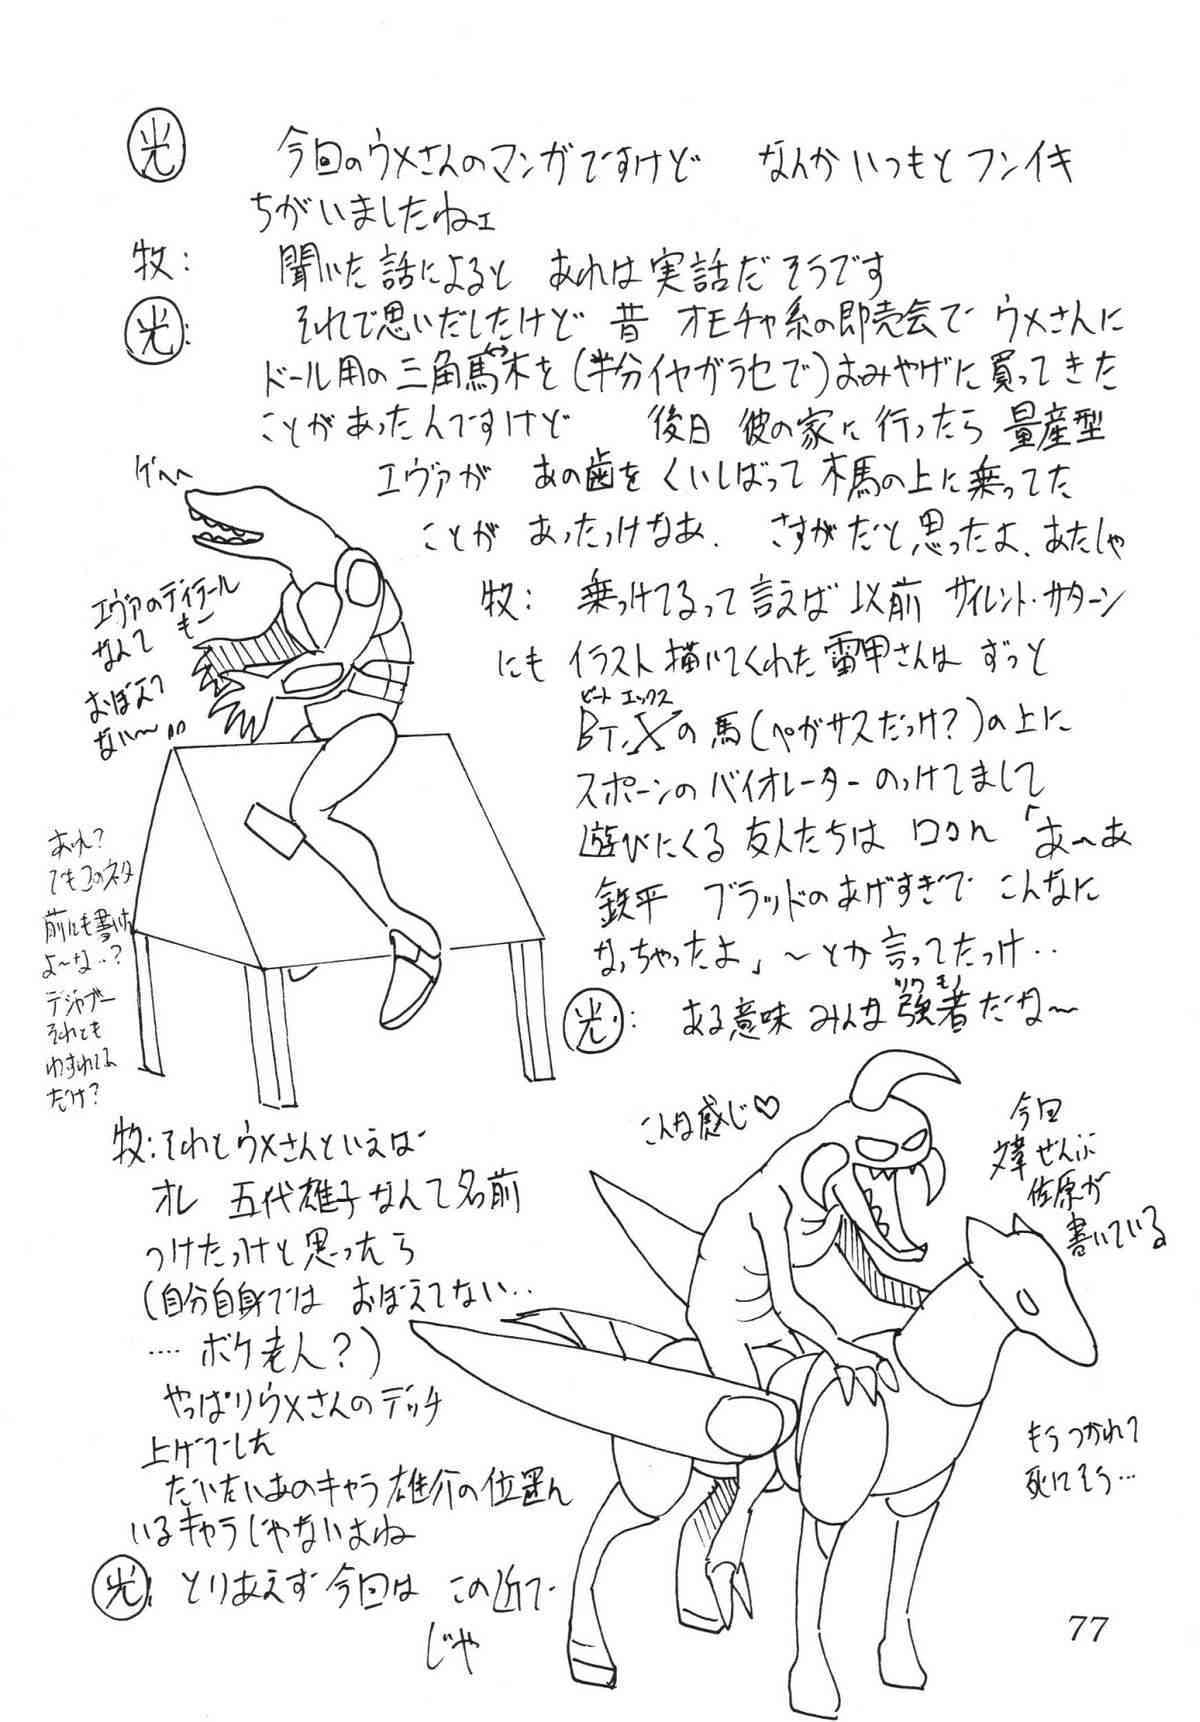 光 今回のウメさんのマンガですけど なんかいつもとフンイキ
ちがいましたねェ
牧: 聞いた話によると あれは実話だそうです
光: それで思いだしたけど 昔 オモチャ系の即売会で ウメさんに
ドール用の三角木馬を(半分イヤガラセで)おみやげに買ってきた
ことがあったんですけど 後日 彼の家に行ったら 量産型
エヴァが あの歯をくいしばって木馬の上に乗ってた
ことが あったっけなあ. さすがだと思ったよ、あたしゃ
ゲへへ
エヴァのディテール
なんて もー
おぼえて
ない〜…
あれ?
でもこのネタ
前にも書いた
よ〜な..?
デジャブー
それとも
わすれてる
だけ?
牧: 乗っけてるって言えば 以前 サイレント・サターン
にも イラスト描いてくれた雷甲さんは ずっと
ビート エックス
BT,Xの馬(ペガサスだっけ?)の上に
スポーンのバイオレーター のっけてまして
遊びにくる友人たちは 口々に「あ〜あ
鉄平 ブラッドのあげすぎで こんなに
なっちゃったよ」〜とか言ってたっけ..
ツワモノ
光: ある意味 みんな強者だな〜
牧:それとウメさんといえば
オレ 五代雄子なんて名前
つけたっけと思ったら
(自分自身では おぼえてない..
.... ボケ老人?)
やっぱりウメさんのデッチ
上げでした
だいたいあのキャラ雄介の位置ん
いるキャラじゃないよね
光: とりあえず今回は この辺で
じゃ
こんな感じ♡
今回
文章ぜんぶ
佐原が
書いている
もうつかれて
死にそう…
77